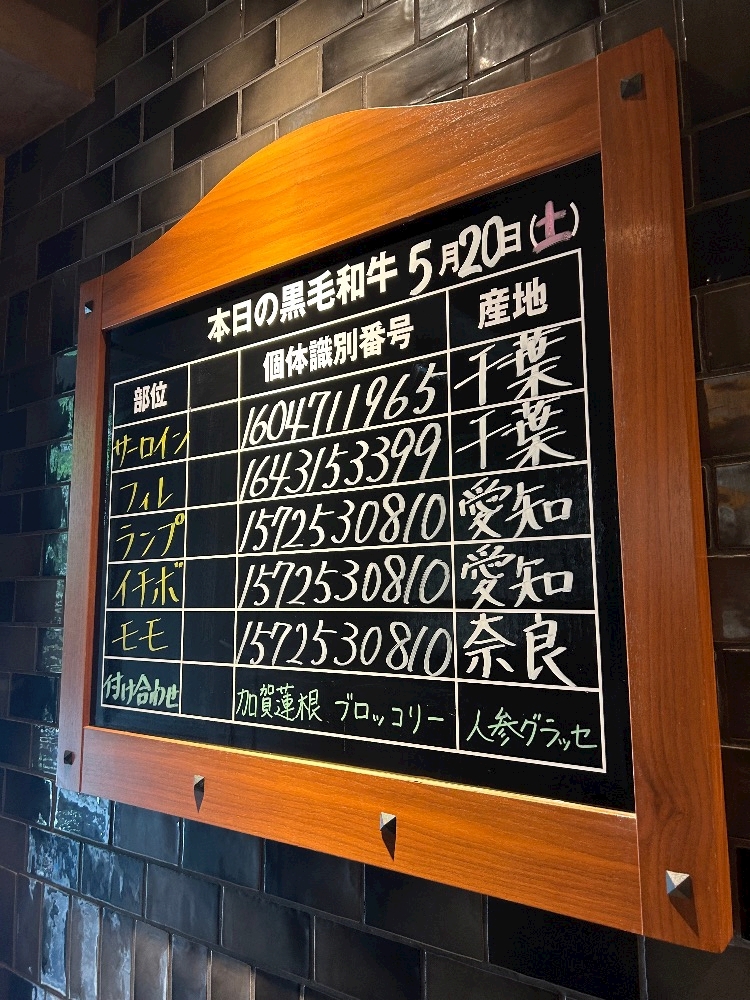 本日の黒毛和牛 5月20日(土)
部位 個体識別番号 産地
サーロイン 1604711965 千葉
フィレ 1643153399 千葉
ランプ 1572530810 愛知
イチボ 1572530810 愛知
モモ 1572530810 奈良
付け合わせ 加賀蓮根 ブロッコリー 人参グラッセ